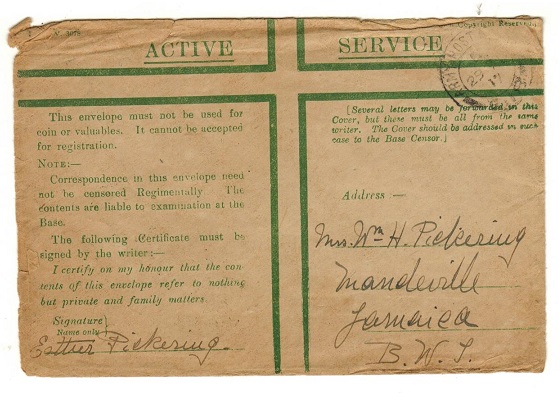 ACTIVE SERVICE
This envelope must not be used for
coin or valuables. It cannot be accepted
for registration.
NOTE:—
Correspondence in this envelope need
not be censored Regimentally. The
contents are liable to examination at the
Base.
The following Certificate must be
signed by the writer:—
I certify on my honour that the con-
tents of this envelope refer to nothing
but private and family matters.
Signature
Name only
Esther Pickering.
[Several letters may be forwarded in this
Cover, but these must be all from the same
writer. The Cover should be addressed in such
case to the Base Censor.]
Address :—
Mrs. Wm H. Pickering
Mandeville
Jamaica
B. W. I.